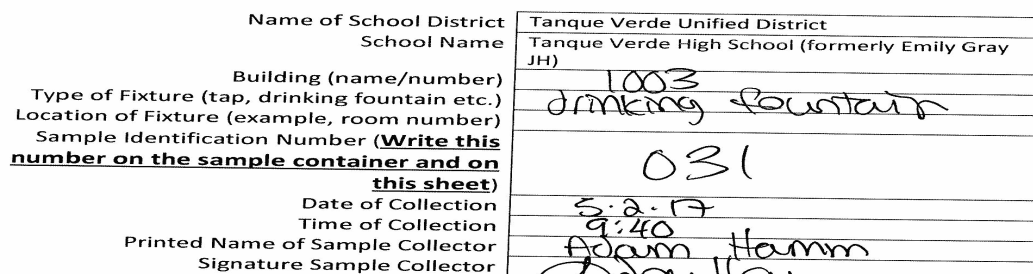 Name of School District Tanque Verde Unified District
School Name Tanque Verde High School (formerly Emily Gray
JH)
Building (name/number) 1003
Type of Fixture (tap, drinking fountain etc.) drinking fountain
Location of Fixture (example, room number)
Sample Identification Number (Write this
number on the sample container and on 031
this sheet)
Date of Collection 5.2.17
Time of Collection 9:40
Printed Name of Sample Collector Adam Hamm
Signature Sample Collector